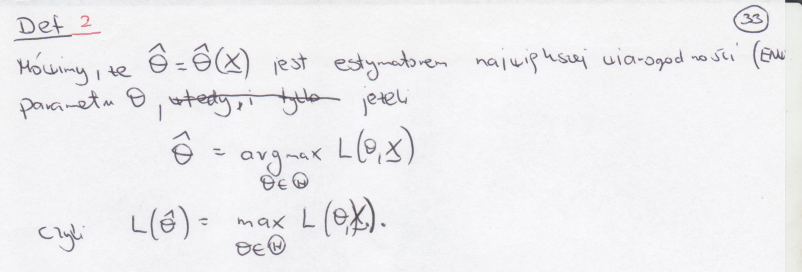 Def 2 33
Mówimy, że θ̂ = θ̂(X) jest estymatorem największej wiarogodności (ENW
parametru θ, wtedy, i tylko jeżeli
θ̂ = argmax L(θ, X)
θ∈Θ
czyli L(θ̂) = max L(θ, X).
θ∈Θ